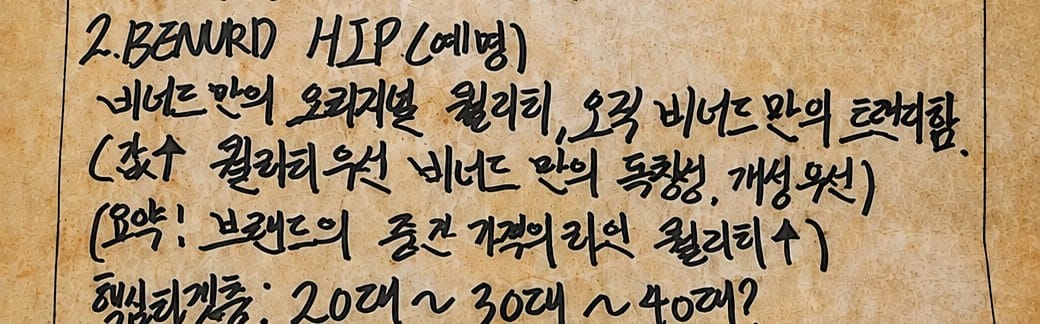 2. BENURD HIP (예명)
비너드만의 오리지널 퀄리티, 오직 비너드만의 트러디함.
(값↑ 퀄리티우선 비너드 만의 독창성, 개성 우선)
(요약! 브랜드의 중간 가격의 라인 퀄리티↑)
핵심타겟층: 20대 ~ 30대 ~ 40대?